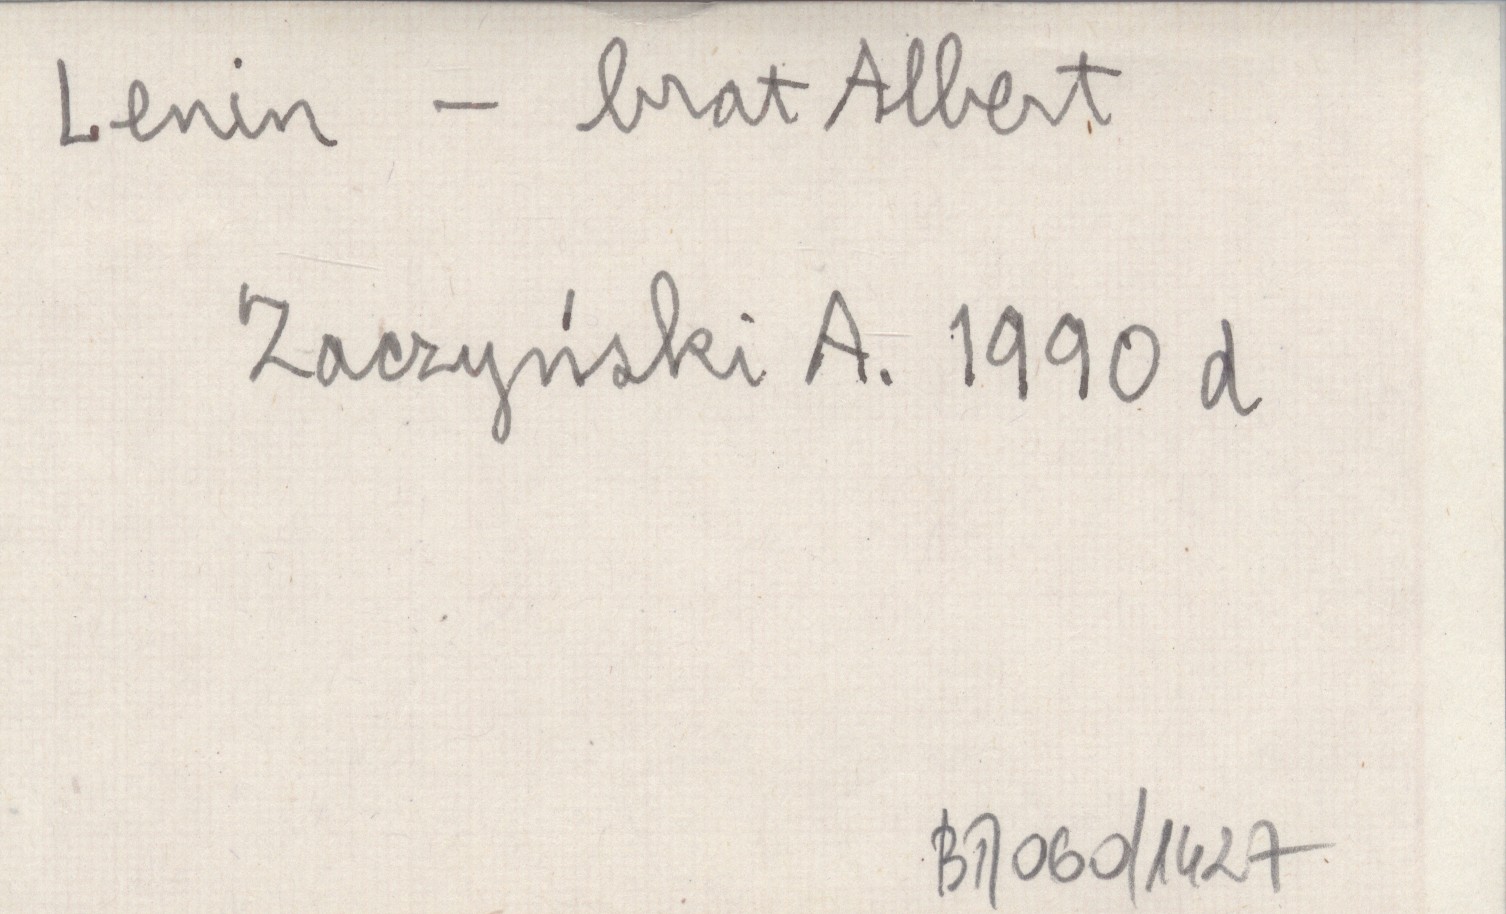 Lenin – brat Albert
Zaczyński A. 1990 d
BT/060/1427